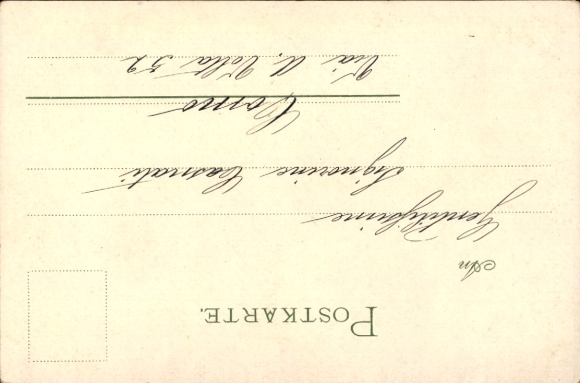 POSTKARTE.
An
Gentilissime
Signorine Casnati
Como
Via A. Volta 52